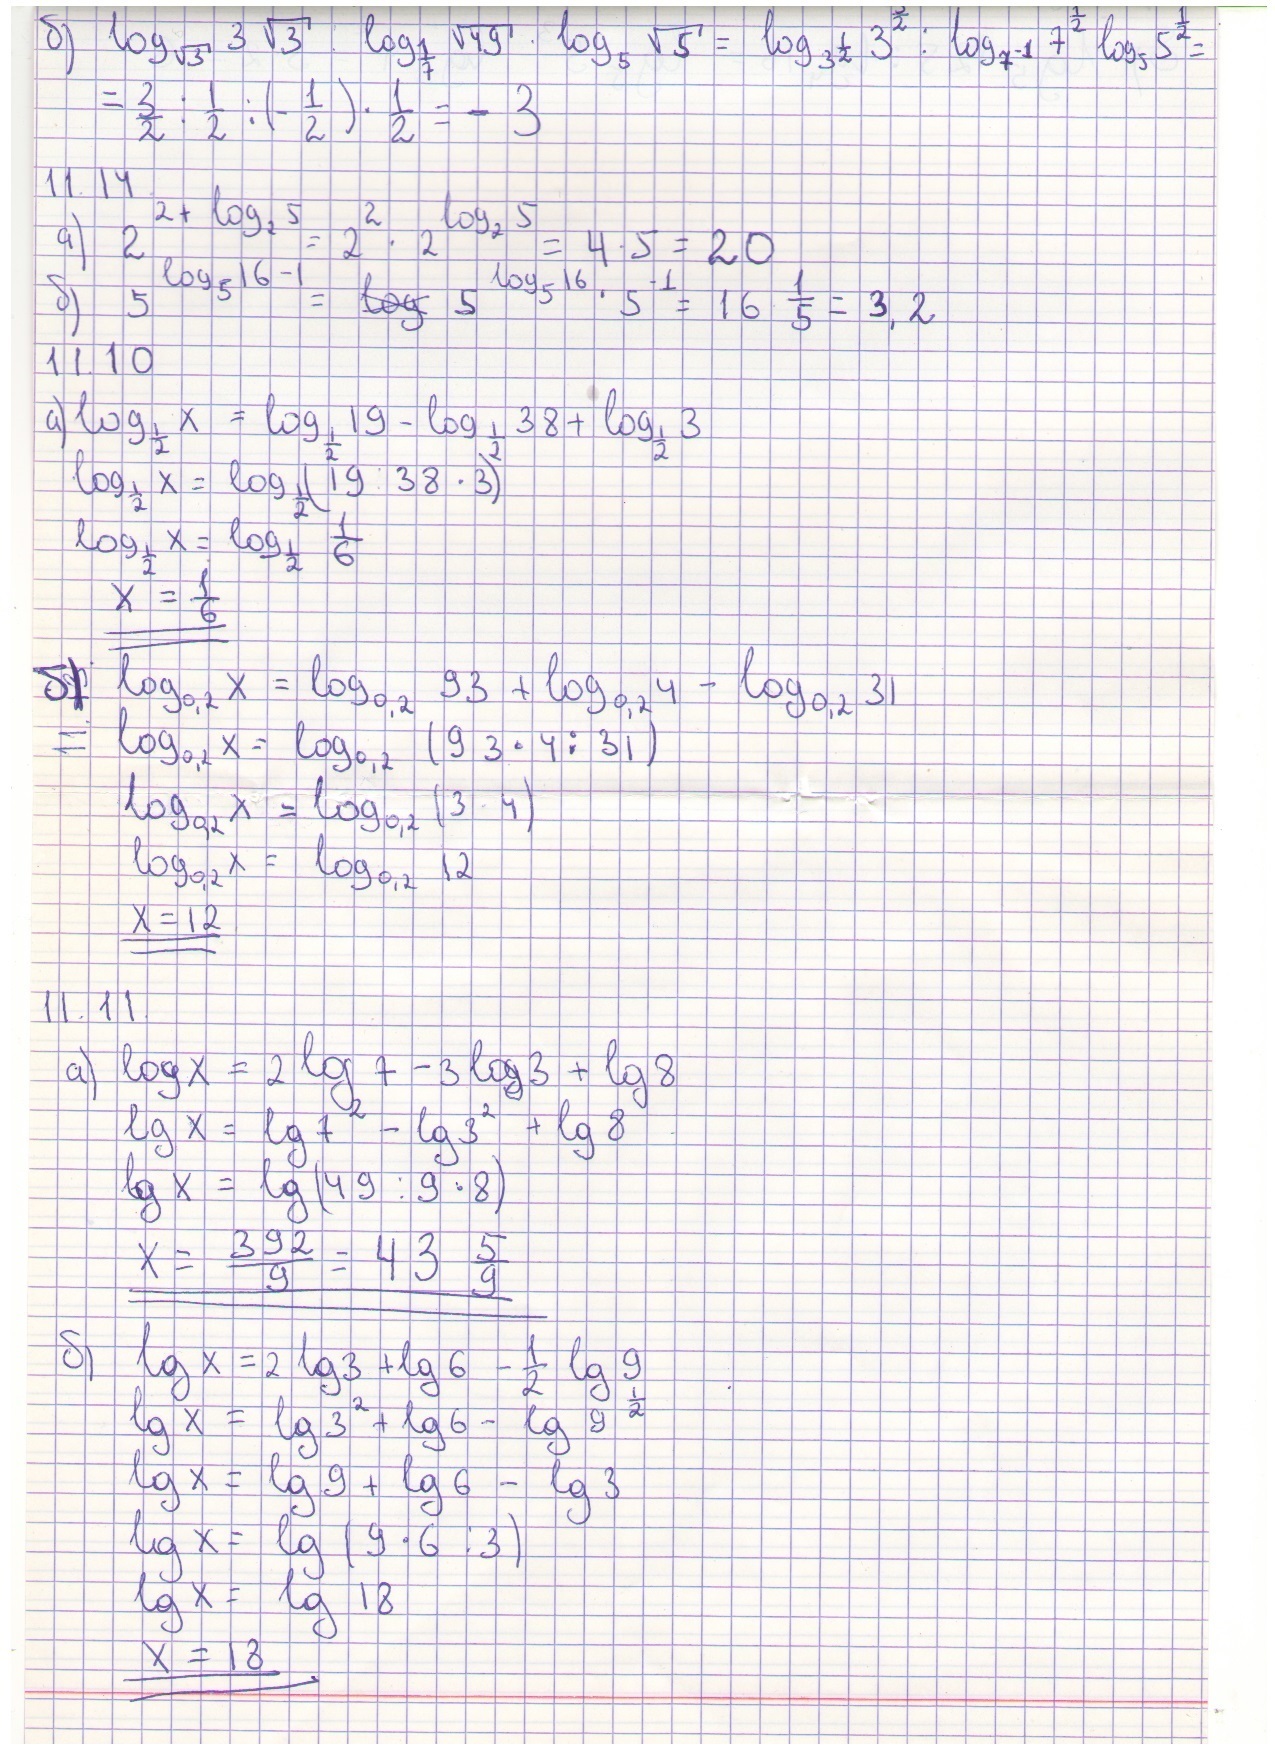 б) log_√3 3√3 : log_1/7 √49 · log_5 √5 = log_3^1/2 3^3/2 : log_7^-1 7^1/2 log_5 5^1/2 =
= 3/2 : 1/2 : (-1/2) · 1/2 = - 3
11.14
а) 2^(2+log_2 5) = 2^2 · 2^(log_2 5) = 4 · 5 = 20
б) 5^(log_5 16-1) = 5^(log_5 16) · 5^-1 = 16 1/5 = 3,2
11.10
а) log_1/2 x = log_1/2 19 - log_1/2 38 + log_1/2 3
log_1/2 x = log_1/2 (19 : 38 · 3)
log_1/2 x = log_1/2 1/6
x = 1/6
б) log_0,2 x = log_0,2 93 + log_0,2 4 - log_0,2 31
= log_0,2 x = log_0,2 (93 · 4 : 31)
log_0,2 x = log_0,2 (3 · 4)
log_0,2 x = log_0,2 12
x = 12
11.11.
а) log x = 2 log 7 - 3 log 3 + lg 8
lg x = lg 7^2 - lg 3^2 + lg 8
lg x = lg (49 : 9 · 8)
x = 392/9 = 43 5/9
б) lg x = 2 lg 3 + lg 6 - 1/2 lg 9
lg x = lg 3^2 + lg 6 - lg 9^1/2
lg x = lg 9 + lg 6 - lg 3
lg x = lg (9 · 6 : 3)
lg x = lg 18
x = 18